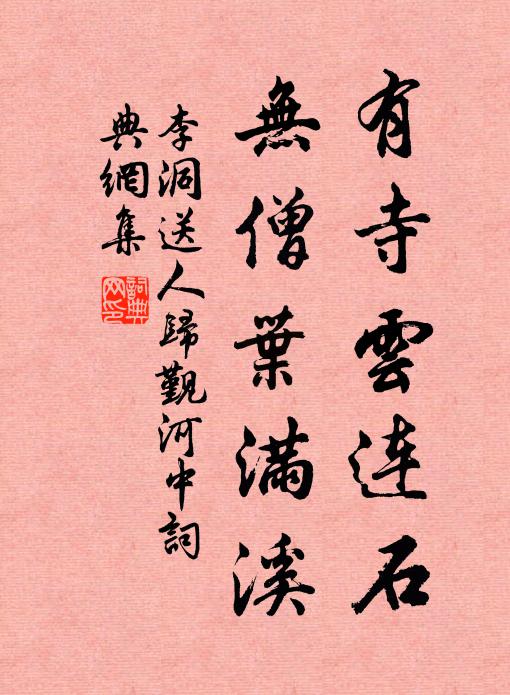 有寺雲連石
無僧葉滿溪
李洞送人歸觀河中詞
典網集
詞典
网印